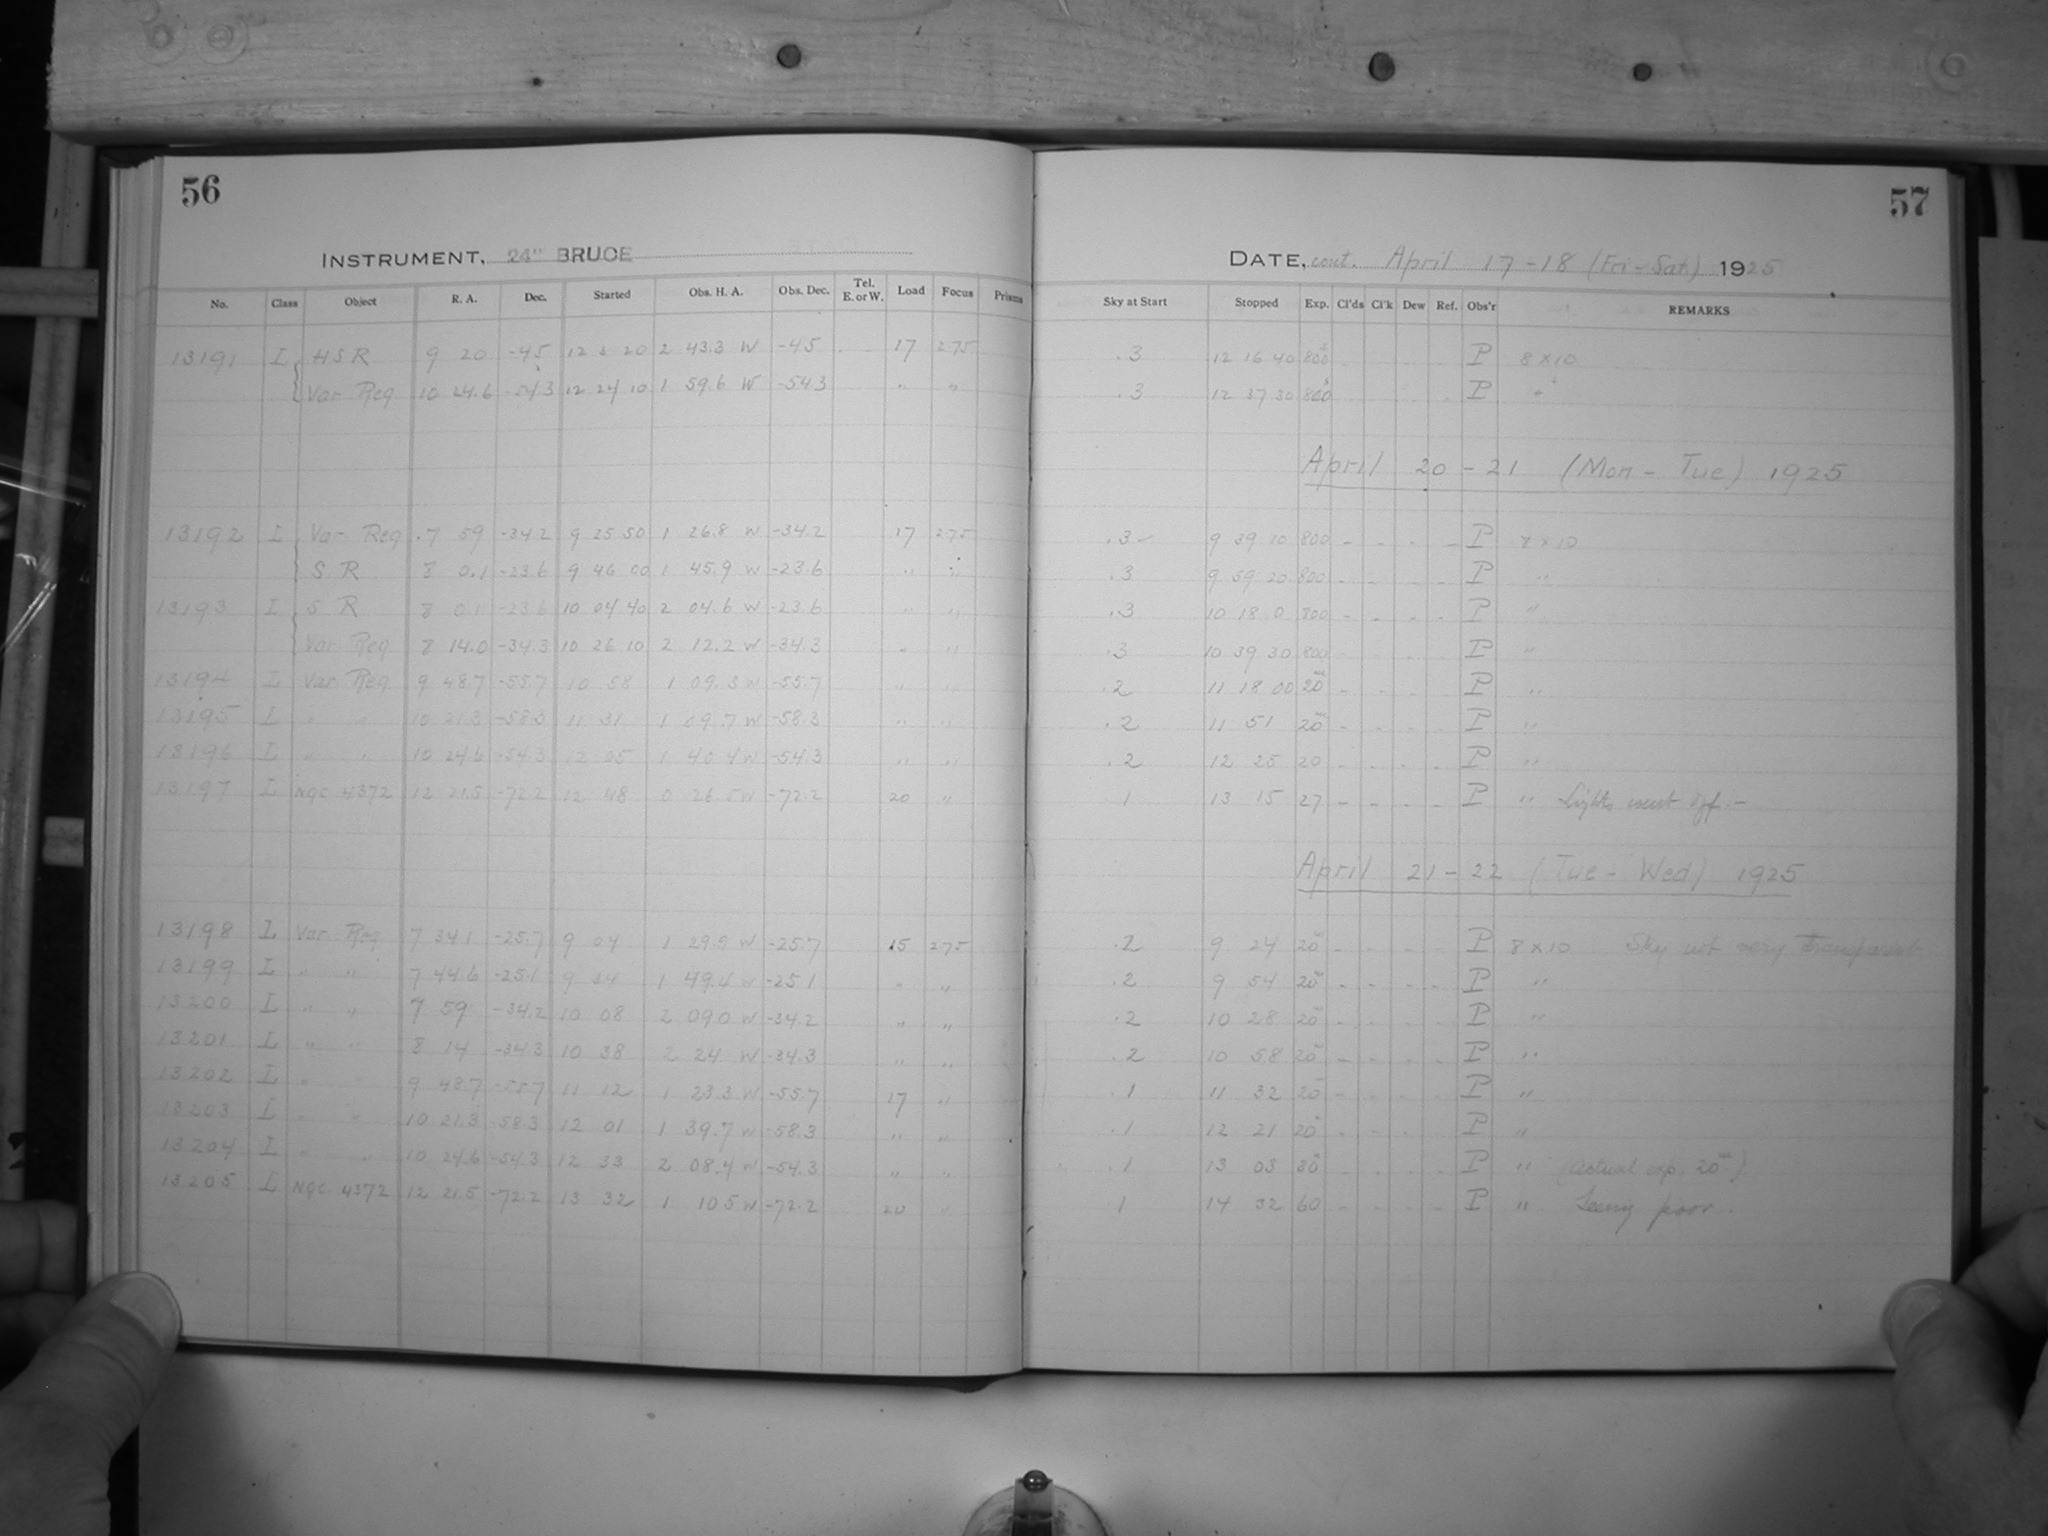 56
57
INSTRUMENT, 24" BRUCE
DATE, cont. April 17-18 (Fri-Sat) 1925
No. Class Object R. A. Dec. Started Obs. H. A. Obs. Dec. Tel. E. or W. Load Focus Prisms Sky at Start Stopped Exp. Cl'ds Cl'k Dew Ref. Obs'r REMARKS
13191 I HSR 9 20 -45 12 3 20 2 43.3 W -45 17 275 .3 12 16 40 800s P 8x10
Var Reg 10 24.6 -54.3 12 24 10 1 59.6 W -54.3 " " .3 12 37 30 800s P "
April 20-21 (Mon - Tue) 1925
13192 I Var Reg 7 59 -34.2 9 25 50 1 26.8 W -34.2 17 275 .3 9 39 10 800 - - - - P 8x10
S R 8 0.1 -23.6 9 46 00 1 45.9 W -23.6 " " .3 9 59 20 800 - - - - P "
13193 I S R 8 0.1 -23.6 10 04 40 2 04.6 W -23.6 " " .3 10 18 0 800 - - - - P "
Var. Reg 8 14.0 -34.3 10 26 10 2 12.2 W -34.3 " " .3 10 39 30 800 - - - - P "
13194 I Var Reg 9 48.7 -55.7 10 58 1 09.3 W -55.7 " " .2 11 18 00 20m - - - - P "
13195 I " " 10 21.3 -58.3 11 31 1 09.7 W -58.3 " " .2 11 51 20m - - - - P "
13196 I " " 10 24.6 -54.3 12 05 1 40.4 W -54.3 " " .2 12 25 20 - - - - P "
13197 I NGC 4372 12 21.5 -72.2 12 48 0 26.5 W -72.2 20 " .1 13 15 27 - - - - P " Lights went off.-
April 21-22 (Tue - Wed) 1925
13198 I Var. Reg 7 34.1 -25.7 9 04 1 29.9 W -25.7 15 275 .2 9 24 20m - - - - P 8x10 Sky not very transparent
13199 I " " 7 44.6 -25.1 9 34 1 49.4 W -25.1 " " .2 9 54 20m - - - - P "
13200 I " " 7 59 -34.2 10 08 2 09.0 W -34.2 " " .2 10 28 20m - - - - P "
13201 I " " 8 14 -34.3 10 38 2 24 W -34.3 " " .2 10 58 20m - - - - P "
13202 I " " 9 48.7 -55.7 11 12 1 23.3 W -55.7 17 " .1 11 32 20 - - - - P "
13203 I " " 10 21.3 -58.3 12 01 1 39.7 W -58.3 " " .1 12 21 20 - - - - P "
13204 I " " 10 24.6 -54.3 12 33 2 08.4 W -54.3 " " .1 13 03 30 - - - - P " (actual exp. 20m)
13205 I NGC. 4372 12 21.5 -72.2 13 32 1 10.5 W -72.2 20 " .1 14 32 60 - - - - P " Seeing poor.